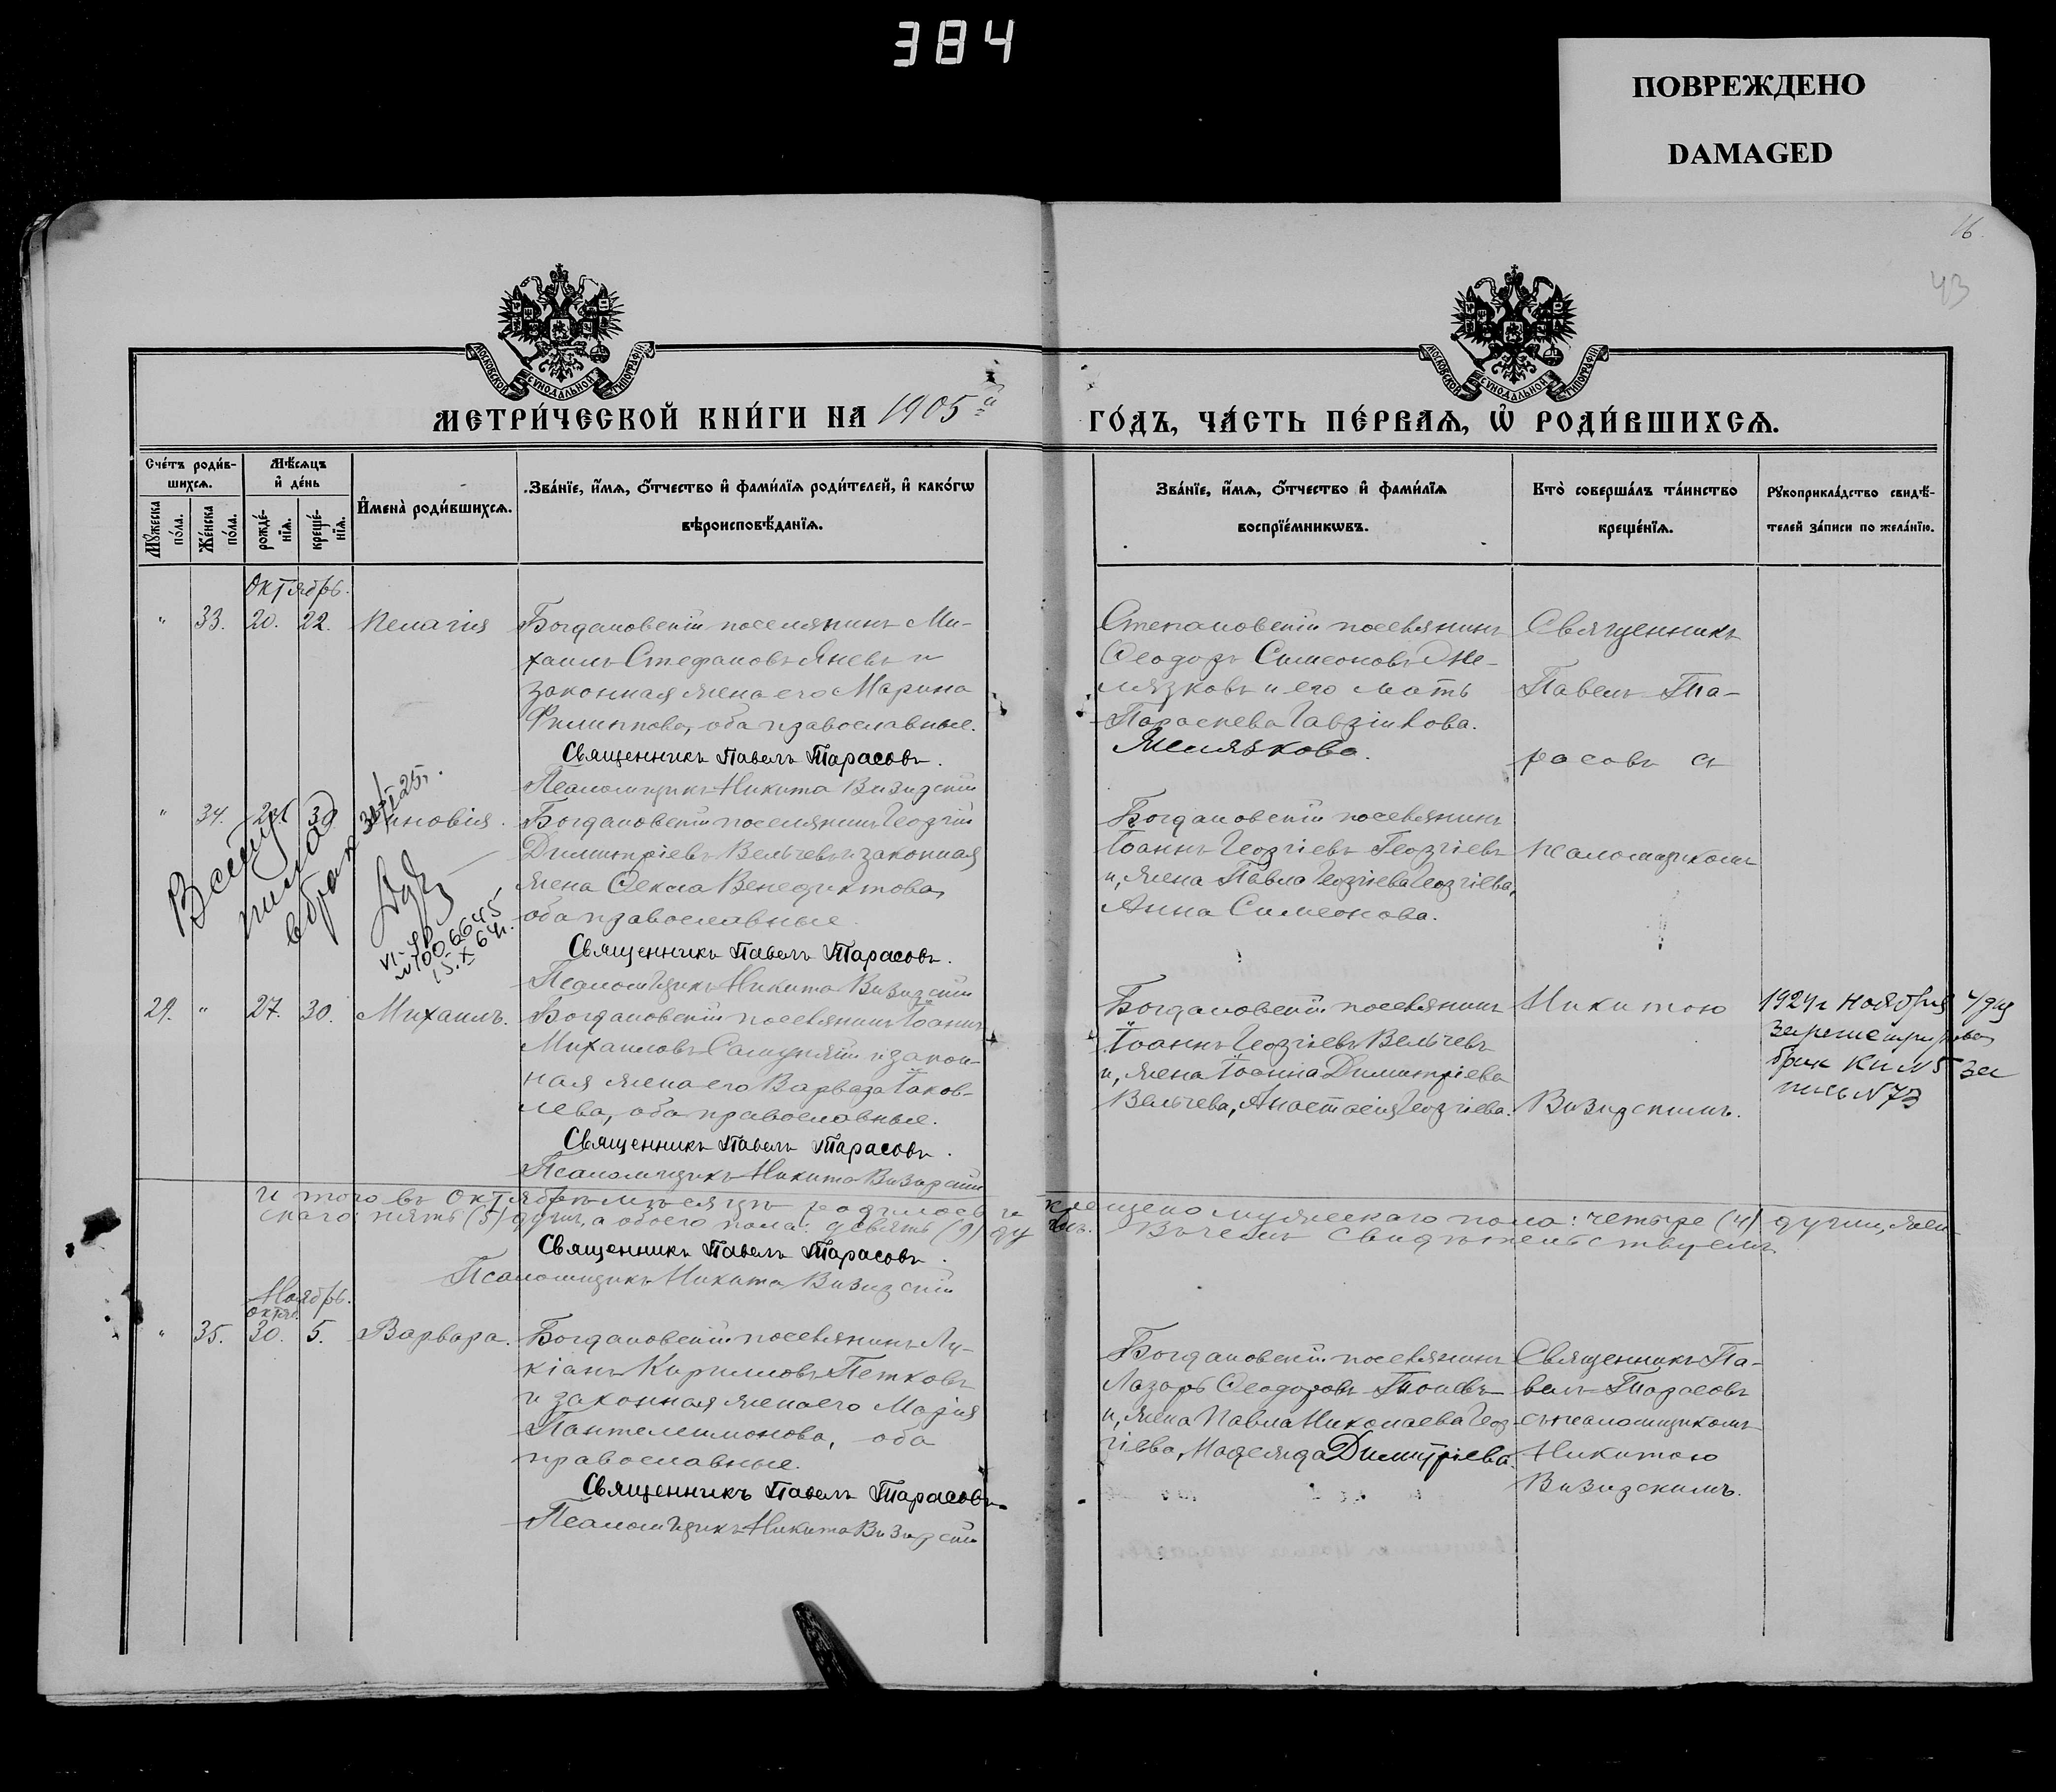 384
ПОВРЕЖДЕНО
DAMAGED
16.
43
МОСКОВСКОЙ СУНОДАЛЬНОЙ ТИПОГРАФІИ
МОСКОВСКОЙ СУНОДАЛЬНОЙ ТИПОГРАФІИ
МЕТРИ́ЧЕСКОЙ КНИ́ГИ НА 1905й ГО́ДЪ, ЧА́СТЬ ПЕ́РВАѦ, Ѡ҆ РОДИ́ВШИХСѦ.
Сче́тъ роди́в-
шихсѧ.
Мꙋжеска по́ла.
Же́нска по́ла.
Мѣ́сѧцъ
и҆ де́нь
рожде́-
нїѧ.
креще́-
нїѧ.
И҆мена̀ роди́вшихсѧ.
Зва́нїе, и҆́мѧ, о҆́тчество и҆ фами́лїѧ роди́телей, и҆ како́гѡ
вѣроисповѣ́данїѧ.
Зва́нїе, и҆́мѧ, о҆́тчество и҆ фами́лїѧ
воспрїе́мникѡвъ.
Кто̀ соверша́лъ та́инство
креще́нїѧ.
Рꙋкоприкла́дство свидѣ́-
телей за́писи по жела́нїю.
Октябрь.
" 33. 20. 22. Пелагія
Богдановскій поселянинъ Ми-
хаилъ Стефановъ Яневъ и
законная жена его Марина
Филиппова, оба православные.
Священникъ Павелъ Тарасовъ.
Псаломщикъ Никита Визирскій
Степановскій поселянинъ
Ѳеодоръ Симеоновъ Же-
лязковъ и его мать
Параскева
Желязкова.
Священникъ
Павелъ Та-
расовъ съ
" 34. 30 иновія.
Богдановскій поселянинъ Георгій
Димитріевъ Вельчевъ и законная
жена Ѳекла Венедиктова,
оба православные
Священникъ Павелъ Тарасовъ.
Псаломщикъ Никита Визирскій
Вступила
в брак
VI-
15.X 64г.
Богдановскій поселянинъ
Іоаннъ Георгіевъ Георгіевъ
и, жена Павла Георгіева Георгіева,
Анна Симеонова.
псаломщикомъ
29. " 27. 30. Михаилъ.
Богдановскій поселянинъ Іоаннъ
Михаиловъ и закон-
ная жена его Варвара Іаков-
лева, оба православные.
Священникъ Павелъ Тарасовъ.
Псаломщикъ Никита Визирскій
Богдановскій поселянинъ
Іоаннъ Георгіевъ Вельчевъ
и, жена Іоанна Димитріева
Вельчева, Анастасія Георгіева.
Никитою
Визирскимъ.
1924г Ноября 4/дня
зарегистрирован
брак Кн №5 за
пись №73
Итого въ Октябрѣ мѣсяцѣ родилось и крещено мужескаго пола: четыре (4) души, жен-
скаго: пять (5) душъ, а обоего пола: девять (9) душъ. Въ чемъ свидѣтельствуемъ.
Священникъ Павелъ Тарасовъ.
Псаломщикъ Никита Визирскій
Ноябрь.
Октяб.
" 35. 30. 5. Варвара.
Богдановскій поселянинъ Лу-
кіанъ Кирилловъ Петковъ
и законная жена его Марія
Пантелеимонова, оба
православные.
Священникъ Павелъ Тарасовъ.
Псаломщикъ Никита Визирскій
Богдановскій поселянинъ
Лазарь Ѳеодоровъ Тоневъ
и, жена Павла Николаева Геор-
гіева, Надежда Димитріева.
Священникъ Па-
велъ Тарасовъ
съ псаломщикомъ
Никитою
Визирскимъ.